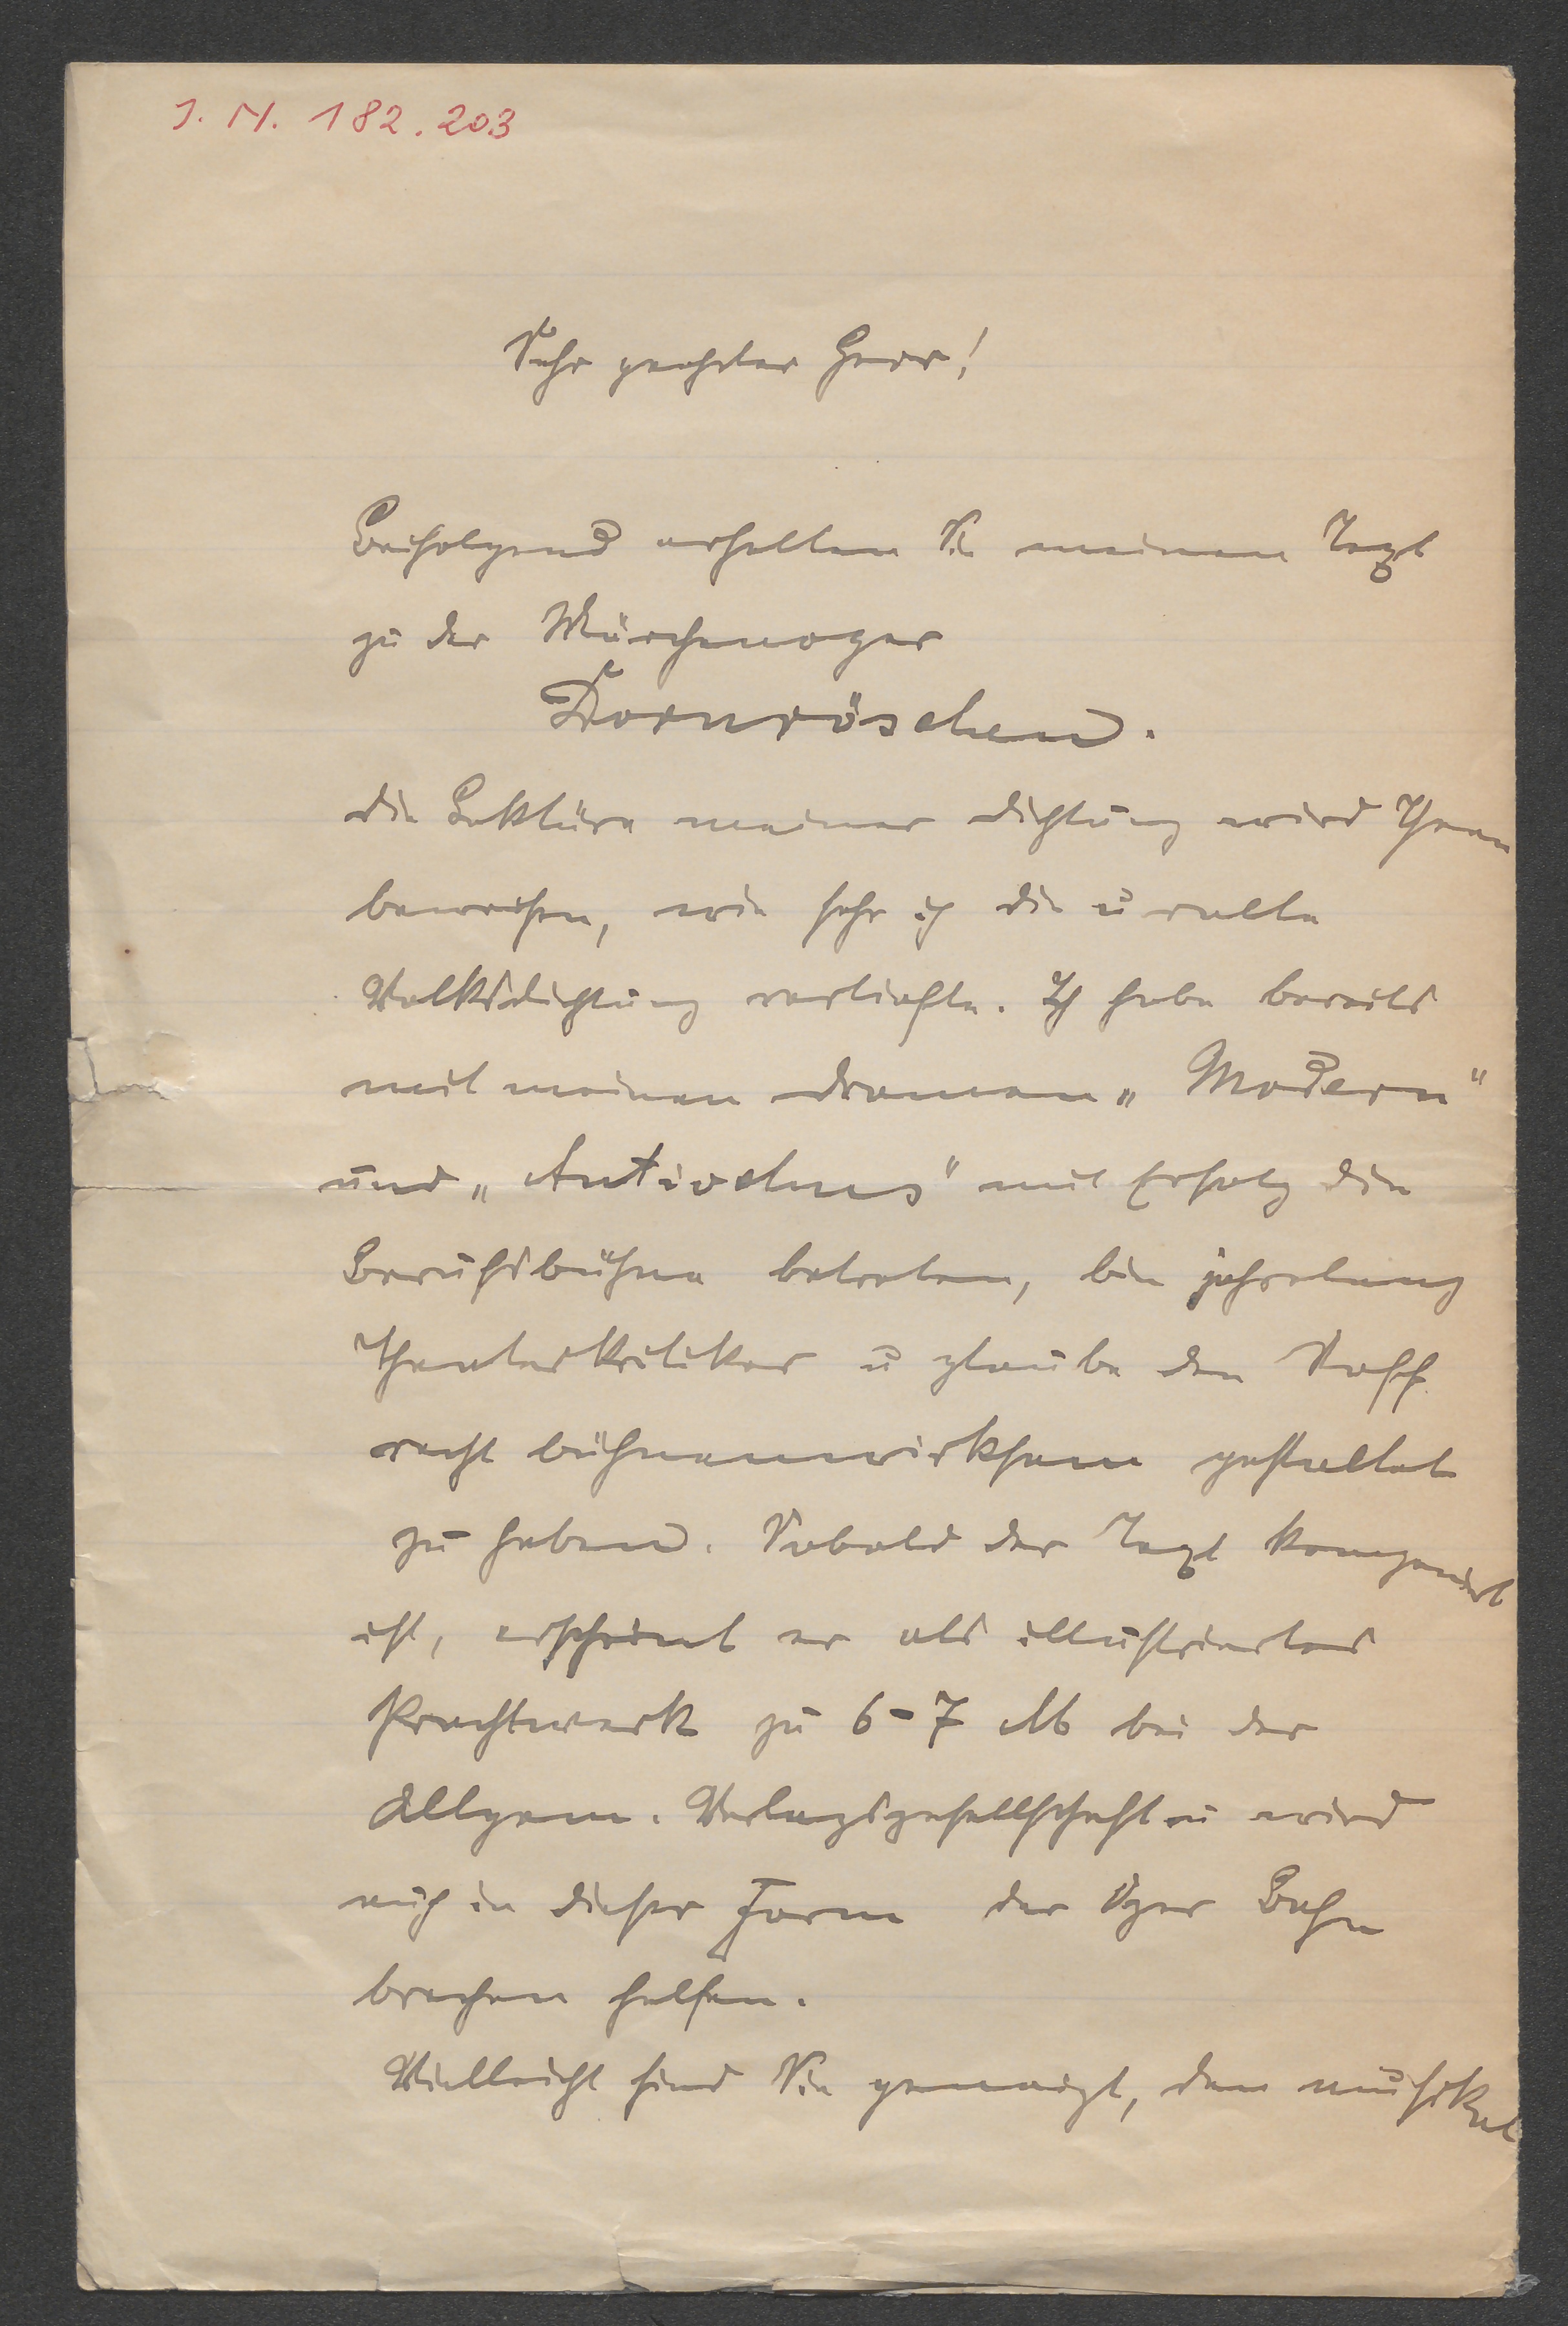 J. N. 182.203
Sehr geehrter Herr!
Beifolgend erhalten Sie meinen Text
zu der Märchenoper
Dornröschen.
Die Lektüre meiner Dichtung wird Ihnen
beweisen, wie sehr ich die uralte
Volksdichtung vertiefte. Ich habe bereits
mit meinen Dramen „Modern"
und „Antiochus" mit Erfolg die
Berufsbühne betreten, bin jahrelang
Theaterkritiker u glaube den Stoff
recht bühnenwirksam gestaltet
zu haben. Sobald der Text komponirt
ist, erscheint er als illustriertes
Prachtwerk zu 6-7 M bei der
Allgem. Verlagsgesellschaft u wird
auch in dieser Form der Oper Bahn
brechen helfen.
Vielleicht sind Sie geneigt, den musikal